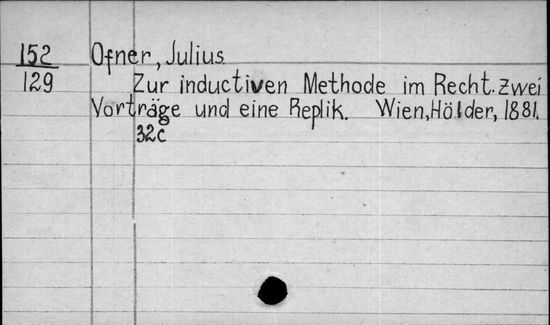 152 Ofner, Julius.
129 Zur inductiven Methode im Recht. Zwei
Vorträge und eine Replik. Wien, Hölder, 1881.
32c